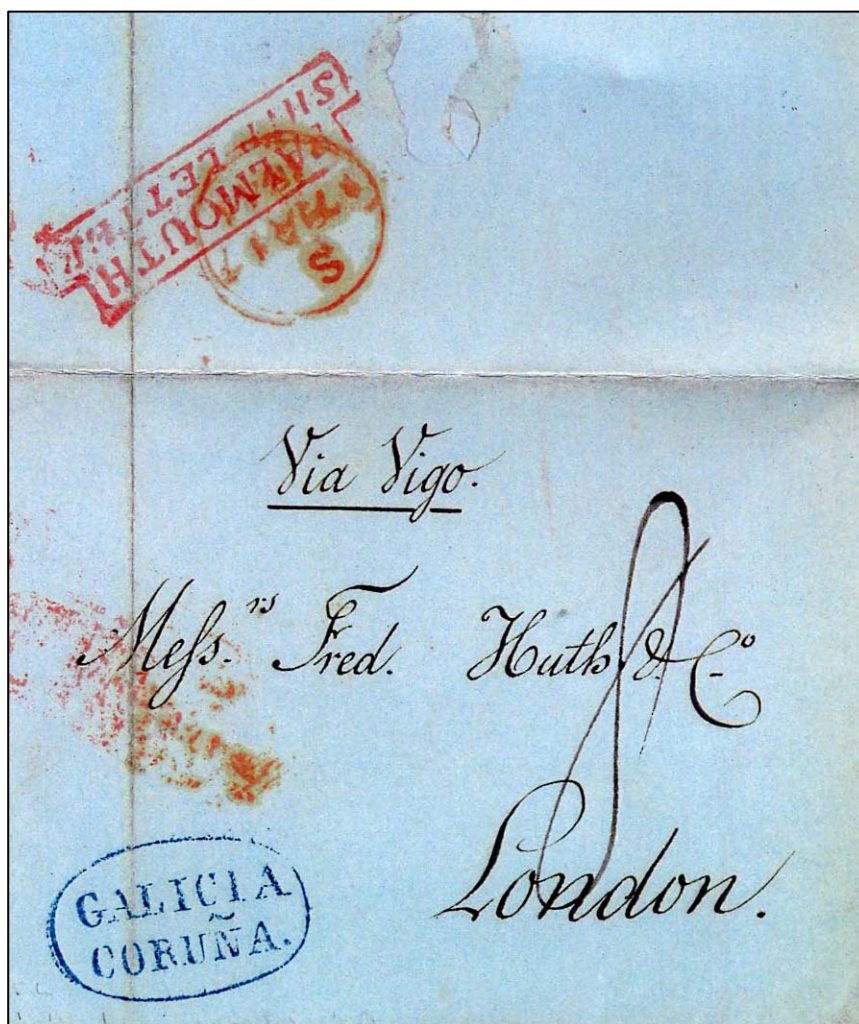 FALMOUTH
SHIP LETTER
S
Via Vigo.
Mess.rs Fred. Huth & Co
8
London.
GALICIA
CORUÑA.